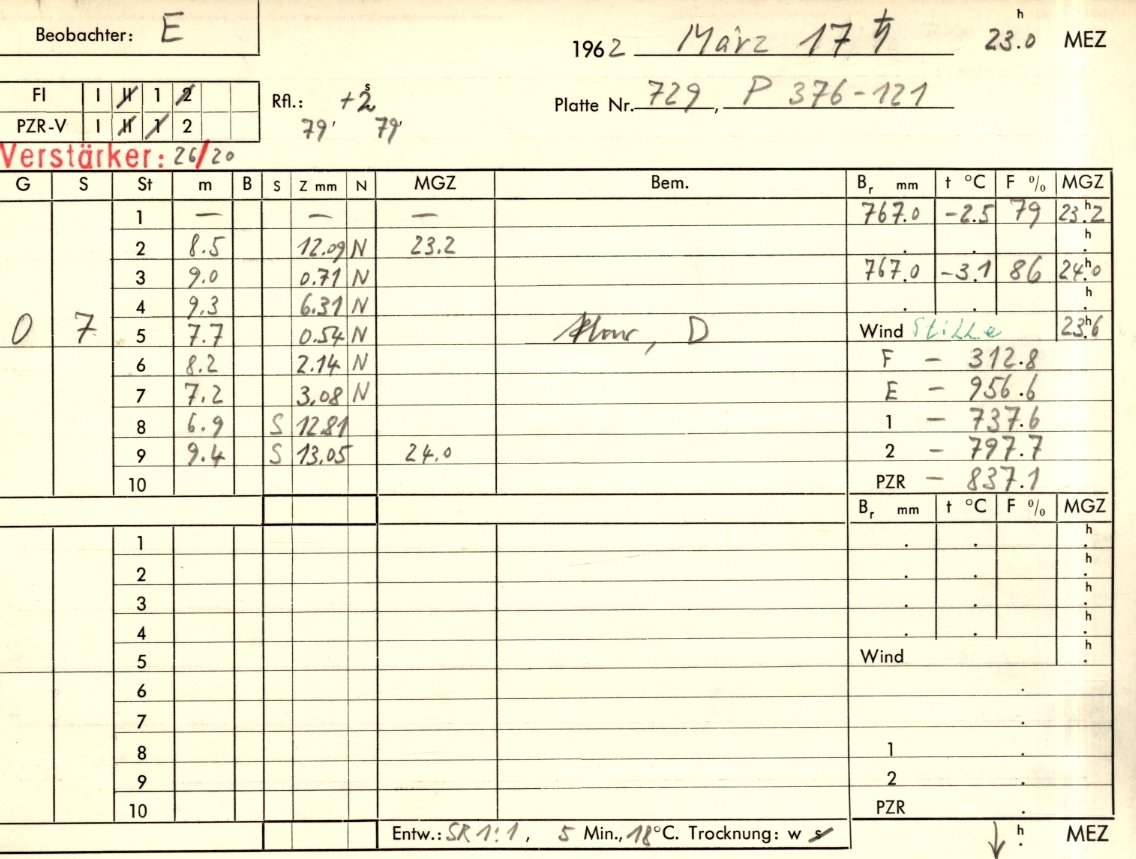 Beobachter: E
1962 März 17 ♄ 23.0 h MEZ
FI I II 1 2
PZR-V I II 1 2
Rfl.: +2 s
79' 79'
Platte Nr. 729, P 376-121
Verstärker: 26/20
G S St m B S Z mm N MGZ Bem. Br mm t °C F % MGZ
1 — — — 767.0 -2.5 79 23.h2
2 8.5 12.09 N 23.2 . . h.
3 9.0 0.71 N 767.0 -3.1 86 24.h0
4 9.3 6.31 N . . h.
0 7 5 7.7 0.54 N D Wind Stille 23.h6
6 8.2 2.14 N F - 312.8
7 7.2 3.08 N E - 956.6
8 6.9 S 12.81 1 - 737.6
9 9.4 S 13.05 24.0 2 - 797.7
10 PZR - 837.1
Br mm t °C F % MGZ
1 . . h.
2 . . h.
3 . . h.
4 . . h.
5 Wind h.
6 .
7 .
8 1 .
9 2 .
10 PZR .
Entw.: SR 1:1, 5 Min., 18°C. Trocknung: w s ↓ h. MEZ